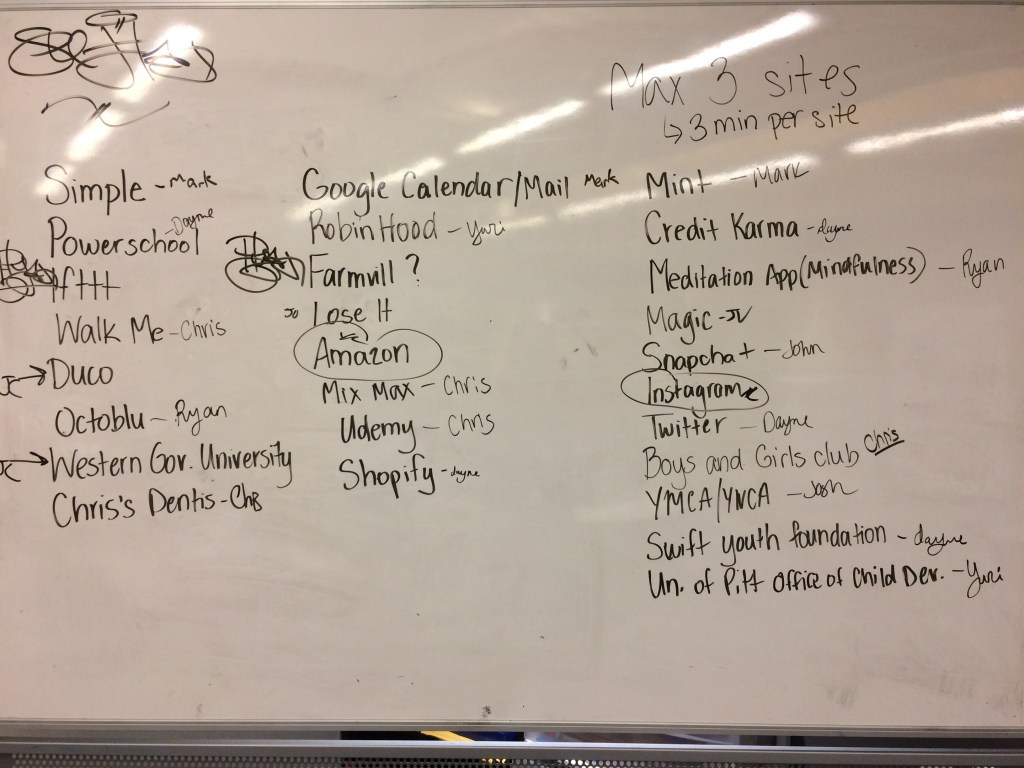 Max 3 sites
↳ 3 min per site
Simple - Mark
Powerschool - Dayne
Ifttt
Walk Me - Chris
JC → Duco
Octoblu - Ryan
JC → Western Gov. University
Chris's Dentis - Chris
Google Calendar/Mail Mark
RobinHood - Yuri
Farmvill ?
Jo Lose It
Amazon
Mix Max - Chris
Udemy - Chris
Shopify - dayne
Mint - Mark
Credit Karma - dayne
Meditation App (Mindfulness) - Ryan
Magic - JV
Snapchat - John
Instagram
Twitter - Dayne
Boys and Girls club Chris
YMCA/YWCA - Josh
Swift youth foundation - dayne
Un. of Pitt Office of Child Dev. - Yuri